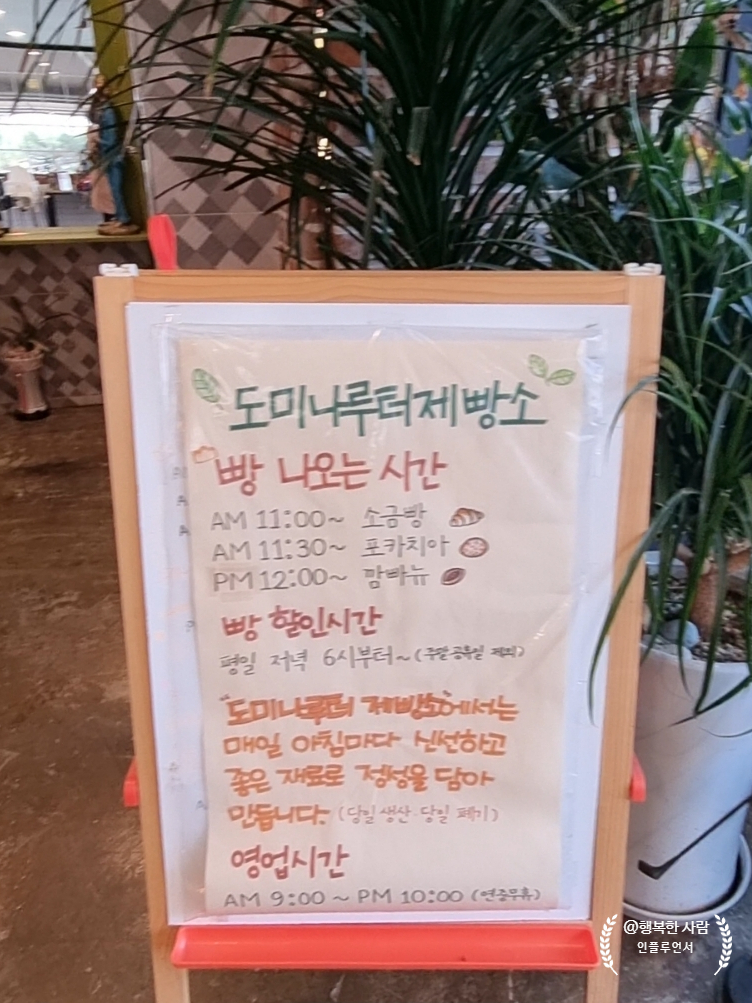 도미나루터제빵소
빵 나오는 시간
AM 11:00~ 소금빵
AM 11:30~ 포카치아
PM 12:00~ 깜빠뉴
빵 할인시간
평일 저녁 6시부터~(주말공휴일 제외)
"도미나루터 제빵소"에서는
매일 아침마다 신선하고
좋은 재료로 정성을 담아
만듭니다. (당일 생산·당일 폐기)
영업시간
AM 9:00 ~ PM 10:00 (연중무휴)
@행복한 사람
인플루언서